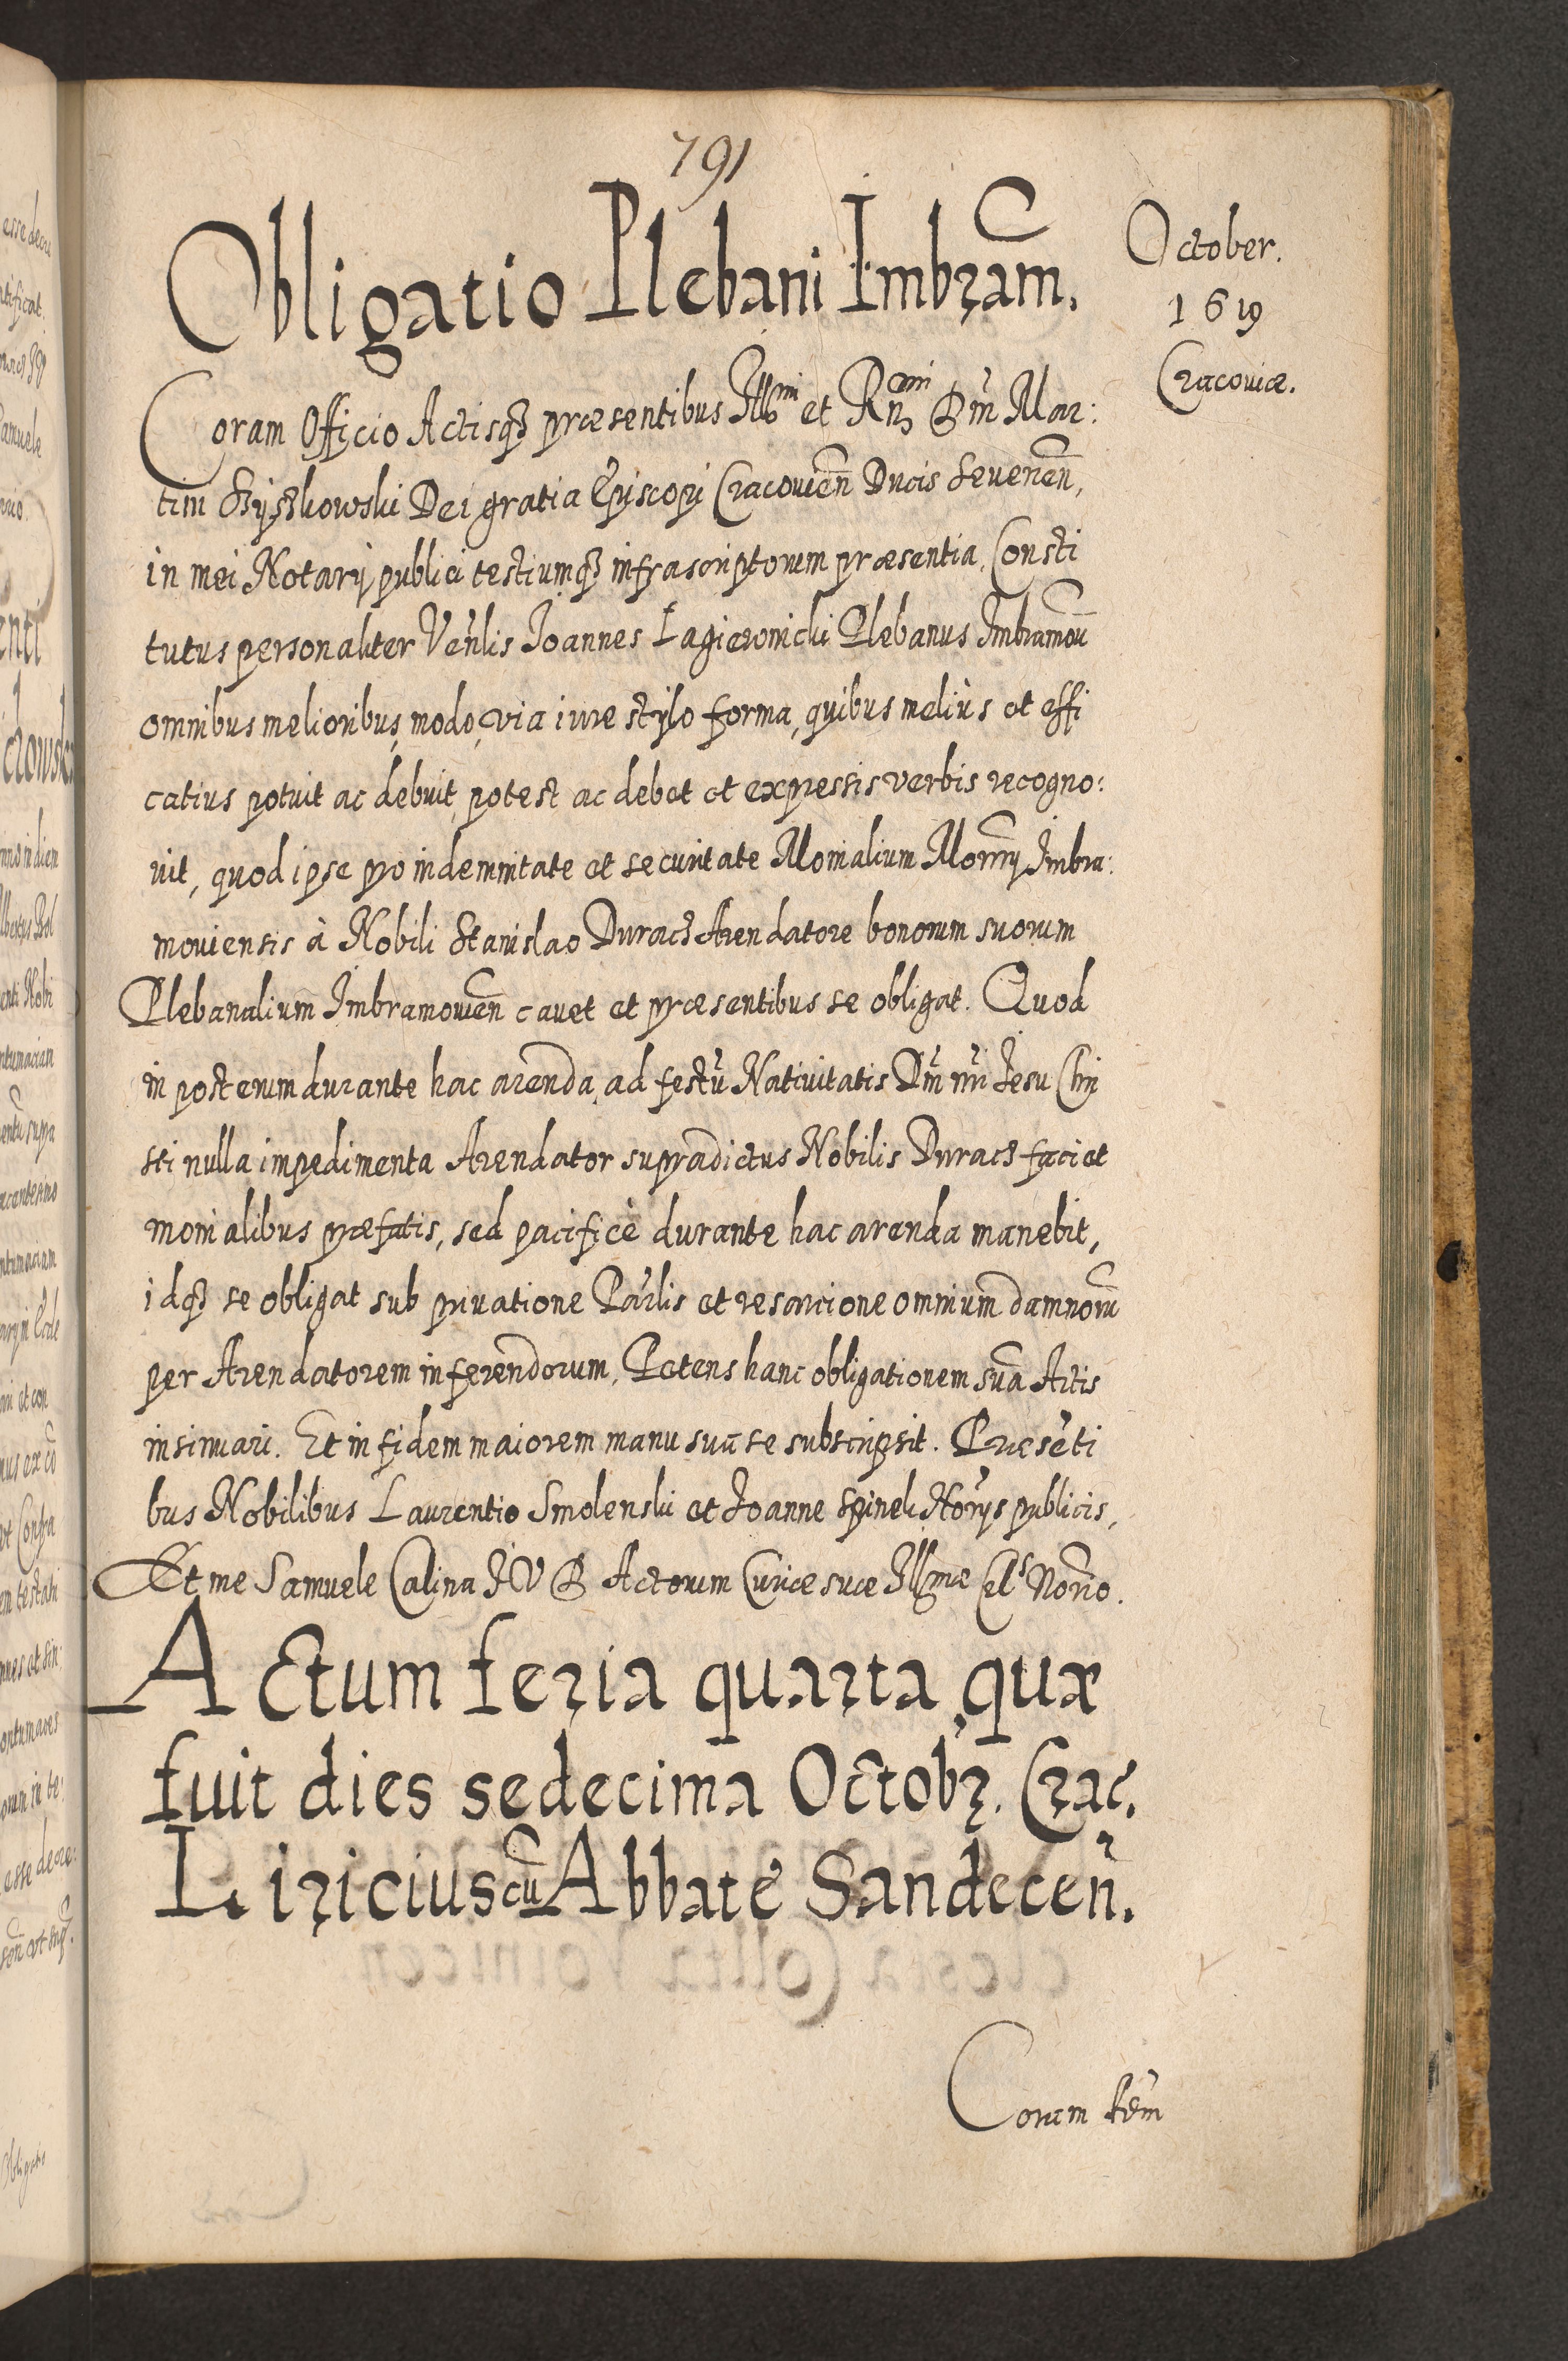 791
Obligatio Plebani Imbram̃.
October.
1619
Cracoviæ.
Coram Officio Actisq; præsentibus Illmi et Rn̄dmi Dn̄i Mar:
tini Szyszkowski Dei gratia Episcopi Cracovien̄ Ducis Severien̄,
in mei Notarij publici testiumq; infrascriptorum præsentia. Consti
tutus personaliter Ven̄lis Joannes Łagiewnicki Plebanus Imbramov̄
omnibus melioribus, modo, via iure stylo forma, quibus meliùs et effi
catius potuit ac debuit, potest ac debet et expressis verbis recogno:
vit, quod ipse pro indemnitate et securitate Monialium Mon̄rij Imbra:
moviensis à Nobili Stanislao Duracz Arendatore bonorum suorum
Plebanalium Imbramovien̄ cavet et præsentibus se obligat. Quod
in posterum durante hac arenda, ad festū Nativitatis Dn̄i nr̄i Jesu Chri
sti nulla impedimenta Arendator supradictus Nobilis Duracz faciet
monialibus præfatis, sed pacificè durante hac arenda manebit,
idq; se obligat sub privatione Par̄lis et resarcione omnium damnorū
per Arendatorem inferendorum, Petens hanc obligationem suā Actis
insinuari. Et in fidem maiorem manu suā se subscripsit. Præsēti
bus Nobilibus Laurentio Smolenski et Joanne Spineli Nor̄ijs publicis,
Et me Samuele Calina J V D Actorum Curiæ suæ Illmæ Cels Nor̄io.
Actum feria quarta, quæ
fuit dies sedecima Octobr. Crac.
Liricius cū Abbate Sandecen̄.
Coram